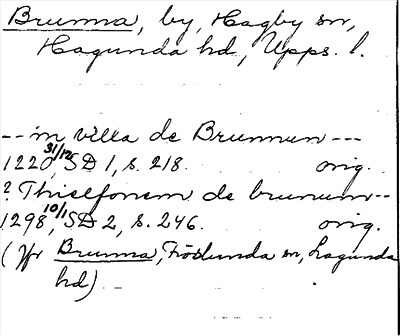 Brunna, by, Hagby sn,
Hagunda hd, Upps. l.
-- in villa de Brunnun ---
1220 31/12, SD 1, s. 218. orig.
? Thielfonem de brunum--
1298 10/1, SD 2, s. 246. orig.
(Jfr Brunna, Fröslunda sn, Lagunda
hd).